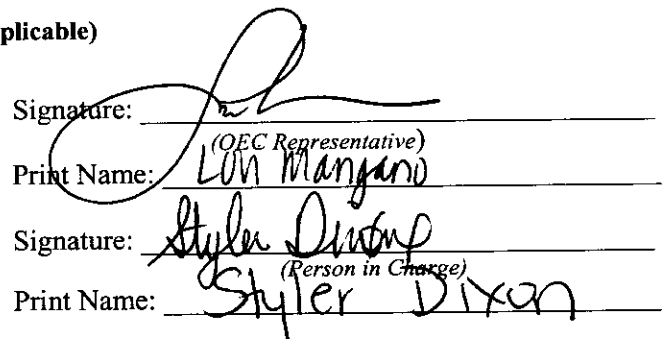 plicable)
Signature:
(OEC Representative)
Print Name: Lori Mangano
Signature: Styler Dixon
(Person in Charge)
Print Name: Styler Dixon